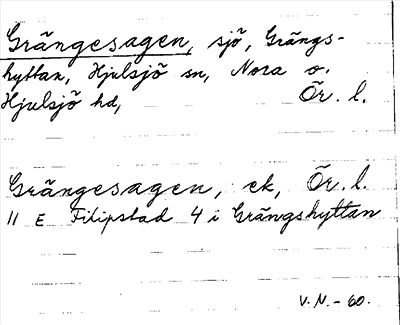 Grängesagen, sjö, Grängs-
hyttan, Hjulsjö sn, Nora o.
Hjulsjö hd, Ör. l.
Grängesagen, ek, Ör. l.
11 E Filipstad 4 i Grängshyttan
V.N.-60.